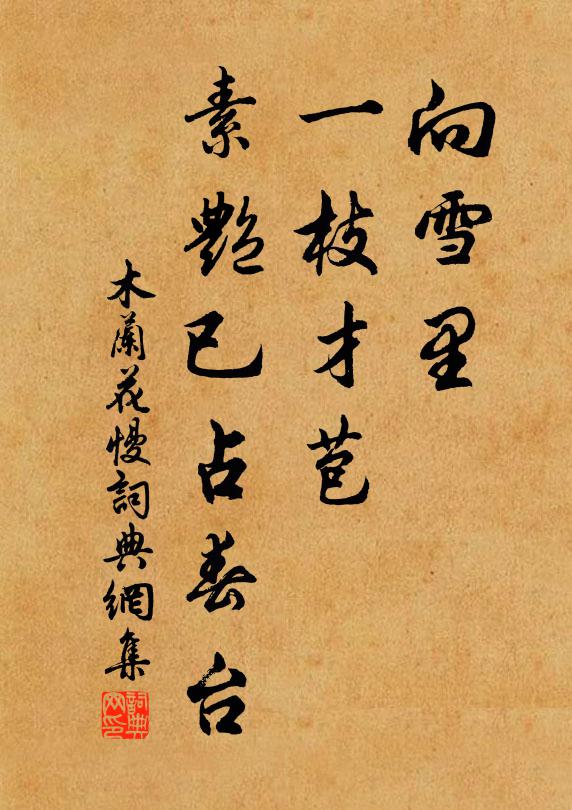 向雪里
一枝才苞
素艷已占春台
木蘭花慢詞典網集
詞典
网印